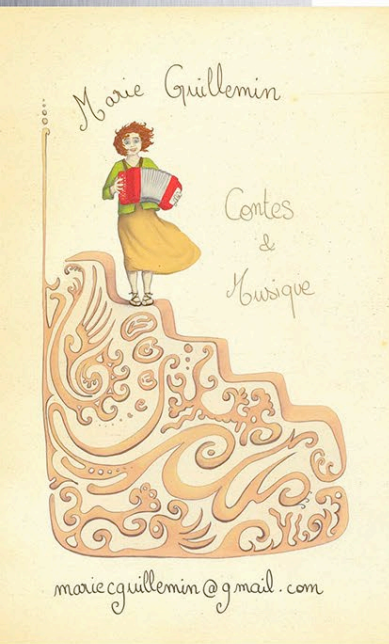 Marie Guillemin
Contes
&
Musique
mariecguillemin@gmail.com